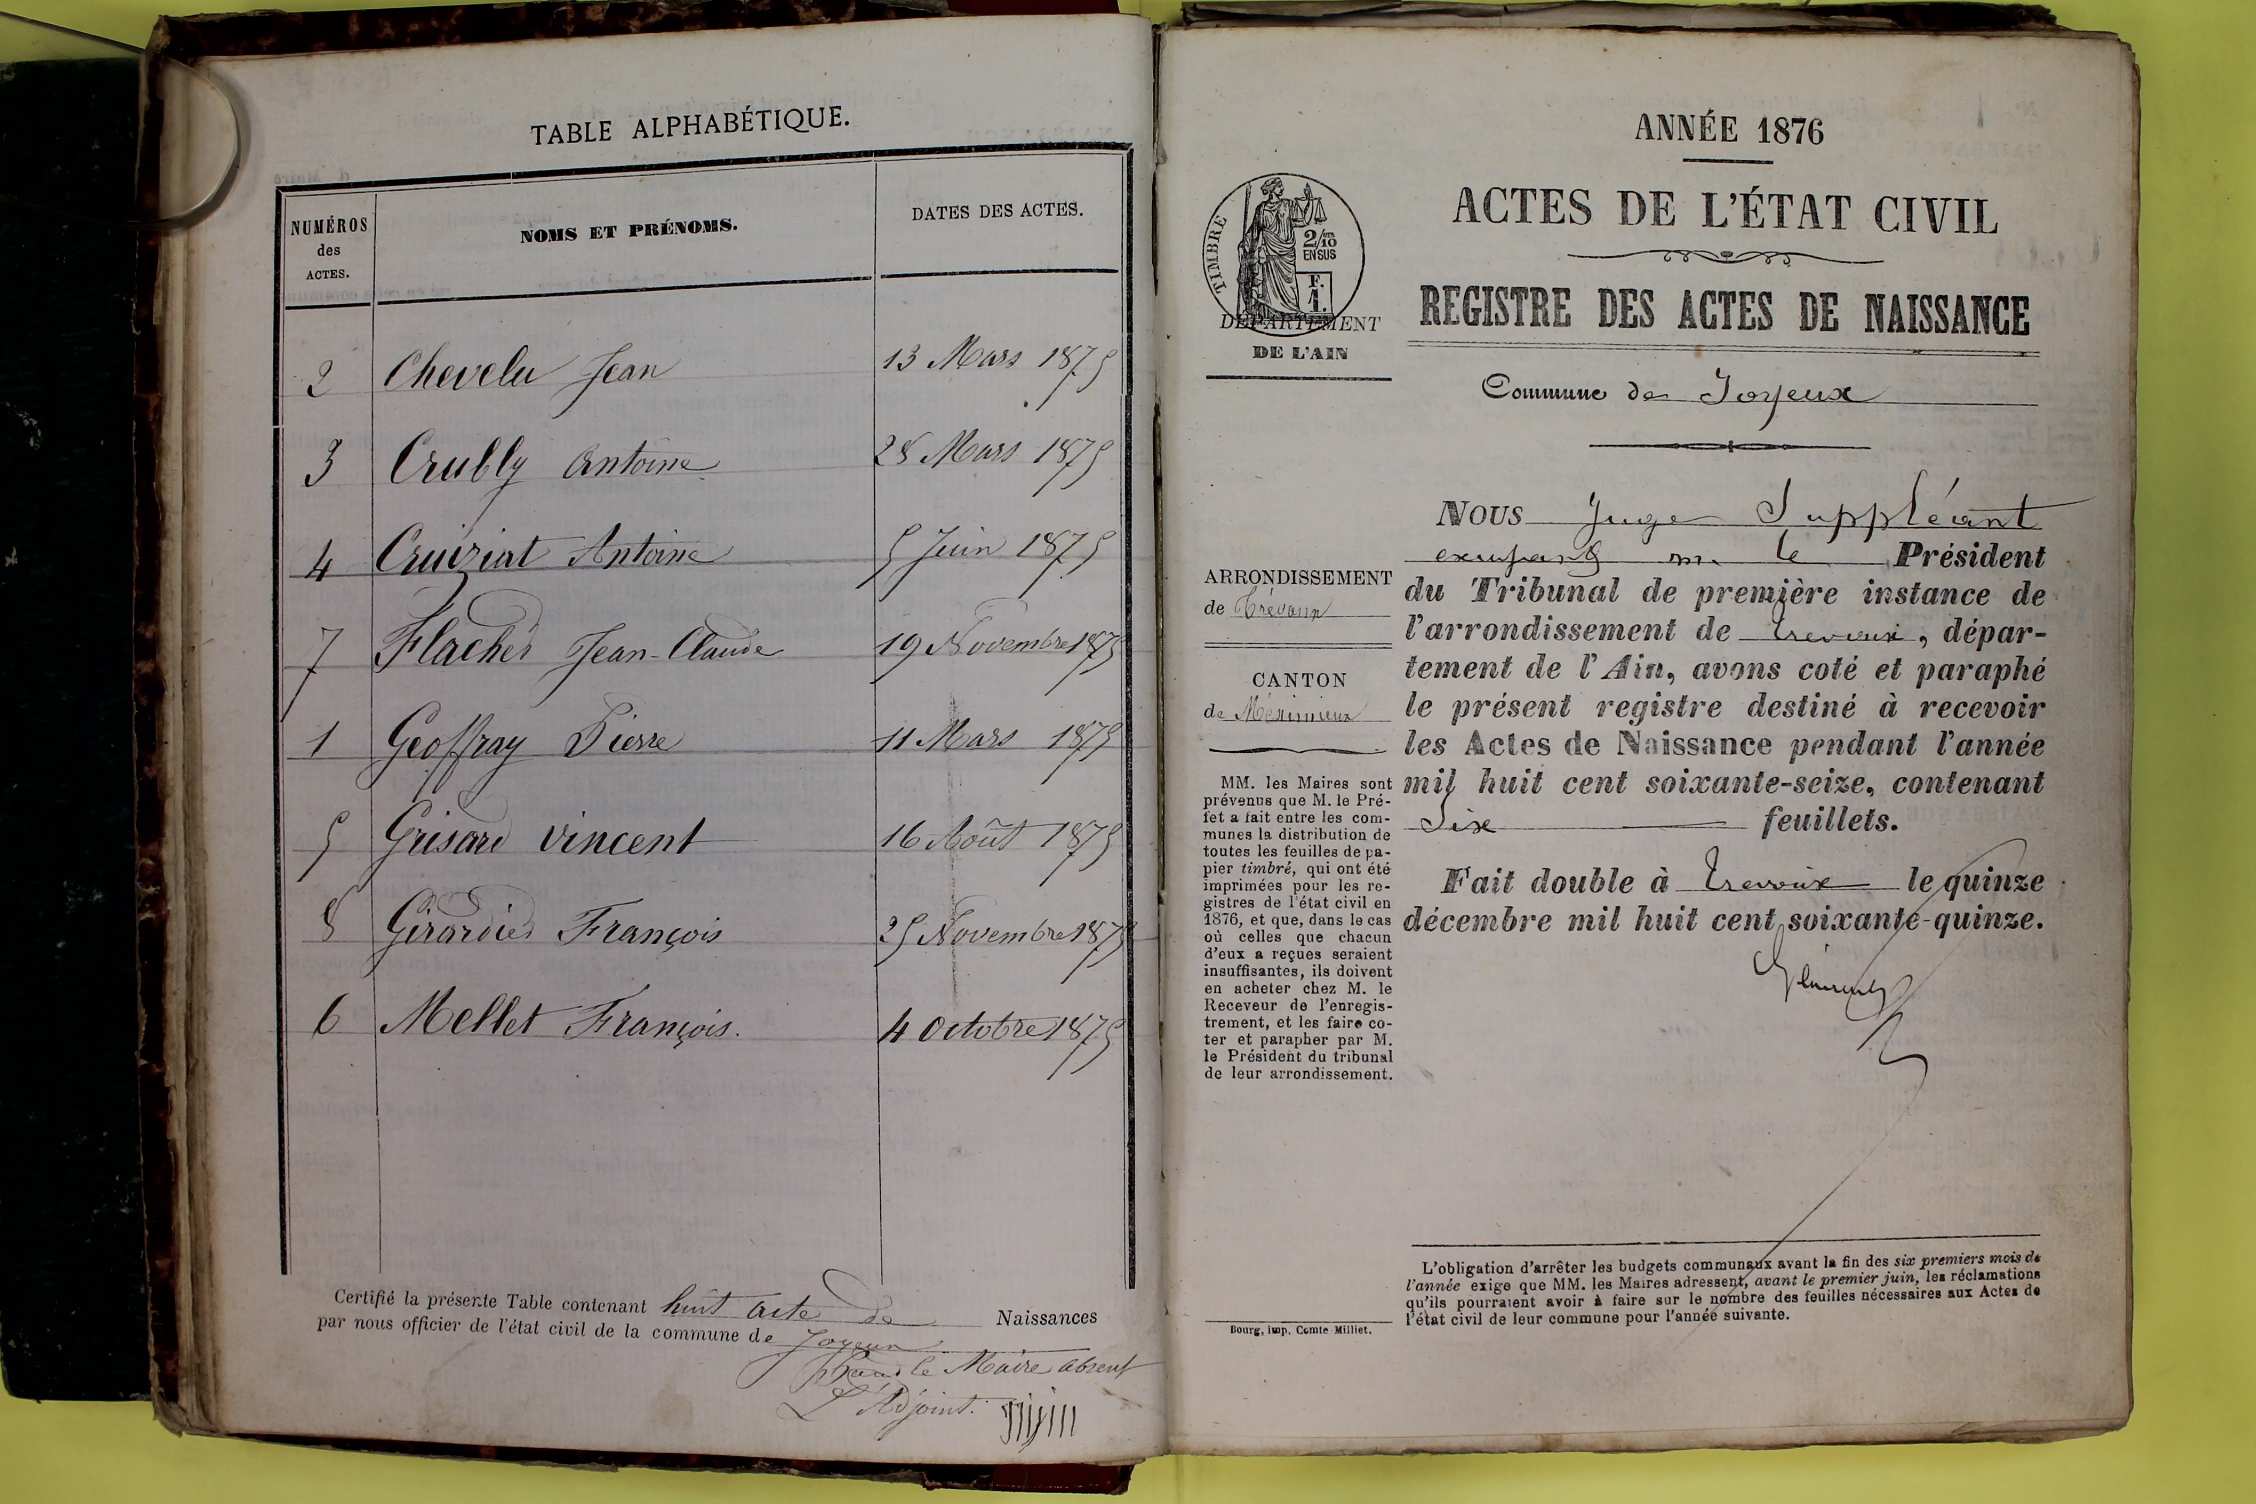 TABLE ALPHABÉTIQUE.
NUMÉROS
des
ACTES.
NOMS ET PRÉNOMS.
DATES DES ACTES.
2 Chevelu Jean 13 Mars 1875
3 Crubly Antoine 28 Mars 1875
4 Cruiziat Antoine 5 Juin 1875
7 Flacher Jean-Claude 19 Novembre 1875
1 Geoffray Pierre 11 Mars 1875
5 Grisard Vincent 16 Août 1875
8 Girardier François 25 Novembre 1875
6 Mellet François. 4 Octobre 1875
Certifié la présente Table contenant huit acte de Naissances
par nous officier de l'état civil de la commune de Joyeux
le Maire absent
L'Adjoint.
ANNÉE 1876
ACTES DE L'ÉTAT CIVIL
REGISTRE DES ACTES DE NAISSANCE
TIMBRE
2/10
EN SUS
F.
1.
DÉPARTEMENT
DE L'AIN
Commune de Joyeux
ARRONDISSEMENT
de Trévoux
CANTON
de Méximieux
MM. les Maires sont
prévenus que M. le Pré-
fet a fait entre les com-
munes la distribution de
toutes les feuilles de pa-
pier timbré, qui ont été
imprimées pour les re-
gistres de l'état civil en
1876, et que, dans le cas
où celles que chacun
d'eux a reçues seraient
insuffisantes, ils doivent
en acheter chez M. le
Receveur de l'enregis-
trement, et les faire co-
ter et parapher par M.
le Président du tribunal
de leur arrondissement.
Bourg, imp. Comte-Milliet.
NOUS Juge Suppléant
m. le Président
du Tribunal de première instance de
l'arrondissement de Trevoux, dépar-
tement de l'Ain, avons coté et paraphé
le présent registre destiné à recevoir
les Actes de Naissance pendant l'année
mil huit cent soixante-seize, contenant
Six feuillets.
Fait double à Trevoux le quinze
décembre mil huit cent soixante-quinze.
L'obligation d'arrêter les budgets communaux avant la fin des six premiers mois de
l'année exige que MM. les Maires adressent, avant le premier juin, les réclamations
qu'ils pourraient avoir à faire sur le nombre des feuilles nécessaires aux Actes de
l'état civil de leur commune pour l'année suivante.